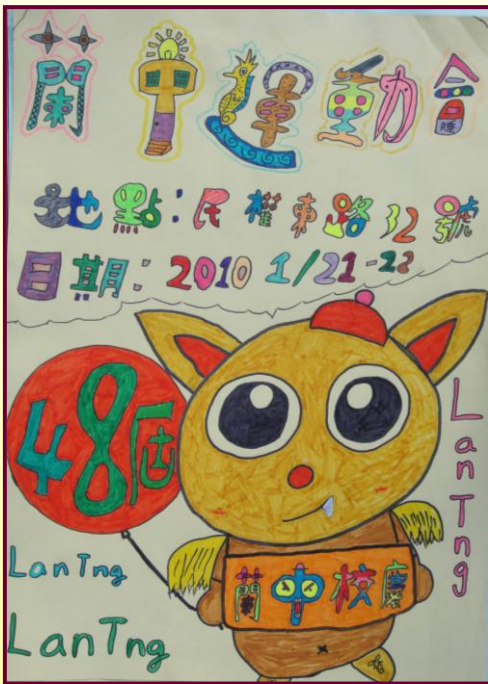 蘭中運動會
地點：民權東路32號
日期：2010 1/21-22
48屆
LanTng
LanTng
LanTng
蘭中校慶